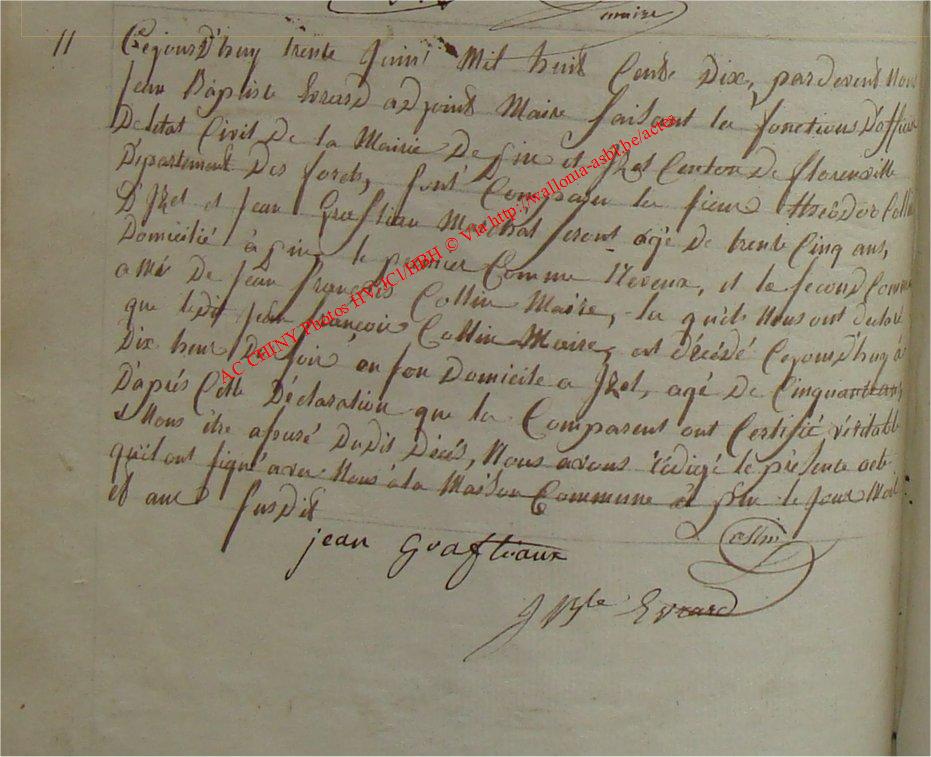 maire
11
Cejourd'huy trente Juin Mil huit Cents Dix, pardevent Nous
Jean Baptiste Evrard adjoint Maire faisant les fonctions D'officier
De letat Civil De la Mairie De fin et Jzel Canton De florenville
Département Des forets, sont Comparu les sieurs théodor Collin
D'Jzel et Jean Graftiau Maréchal ferent agé De trente Cinq ans,
Domicilié à fin, le premier Comme Neveux, et le second Comme
ami De Jean françois Collin Maire, les quels Nous ont declaré
que ledit Jean françois Collin Maire, est décédé Cejourd'huy à
Dix heur De soir en son Domicile a Jzel, agé De Cinquante ans,
D'aprés Cette Déclaration que les Comparent ont Certifié véritable
& Nous être assuré Dudit Décés, Nous avons rédigé le présente acte
qu'il ont signé avec Nous à la Maison Commune à Jzel le jour Mois
et ans susdit
jean Graftiaux
Collin
J Bte Evrard
AC CHINY Photos HVJCl/HBH © Via http://wallonia-asbl.be/actes